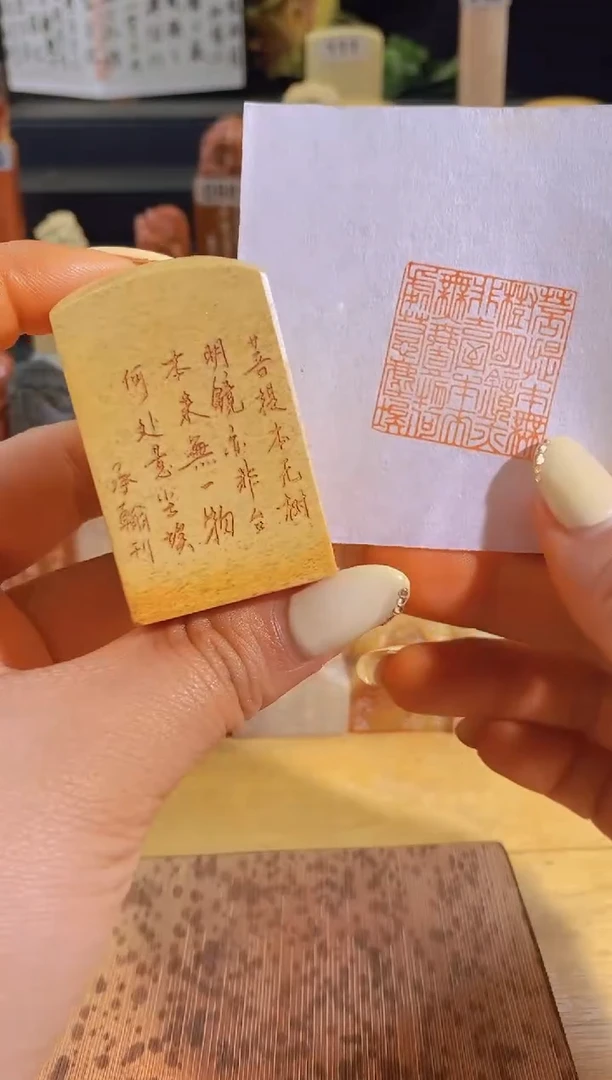 菩提本无树
明镜亦非台
本来無一物
何处惹尘埃
承翰刊
菩提本無
樹明鏡亦
非臺本來
無壹物何
處惹塵埃